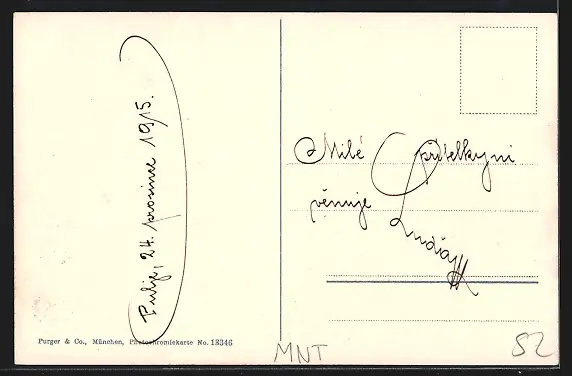 Pulj, 24. prosince 1915.
Milé přítelkyni
věnuje
Purger & Co., München, Photochromiekarte No. 13346
MNT
52